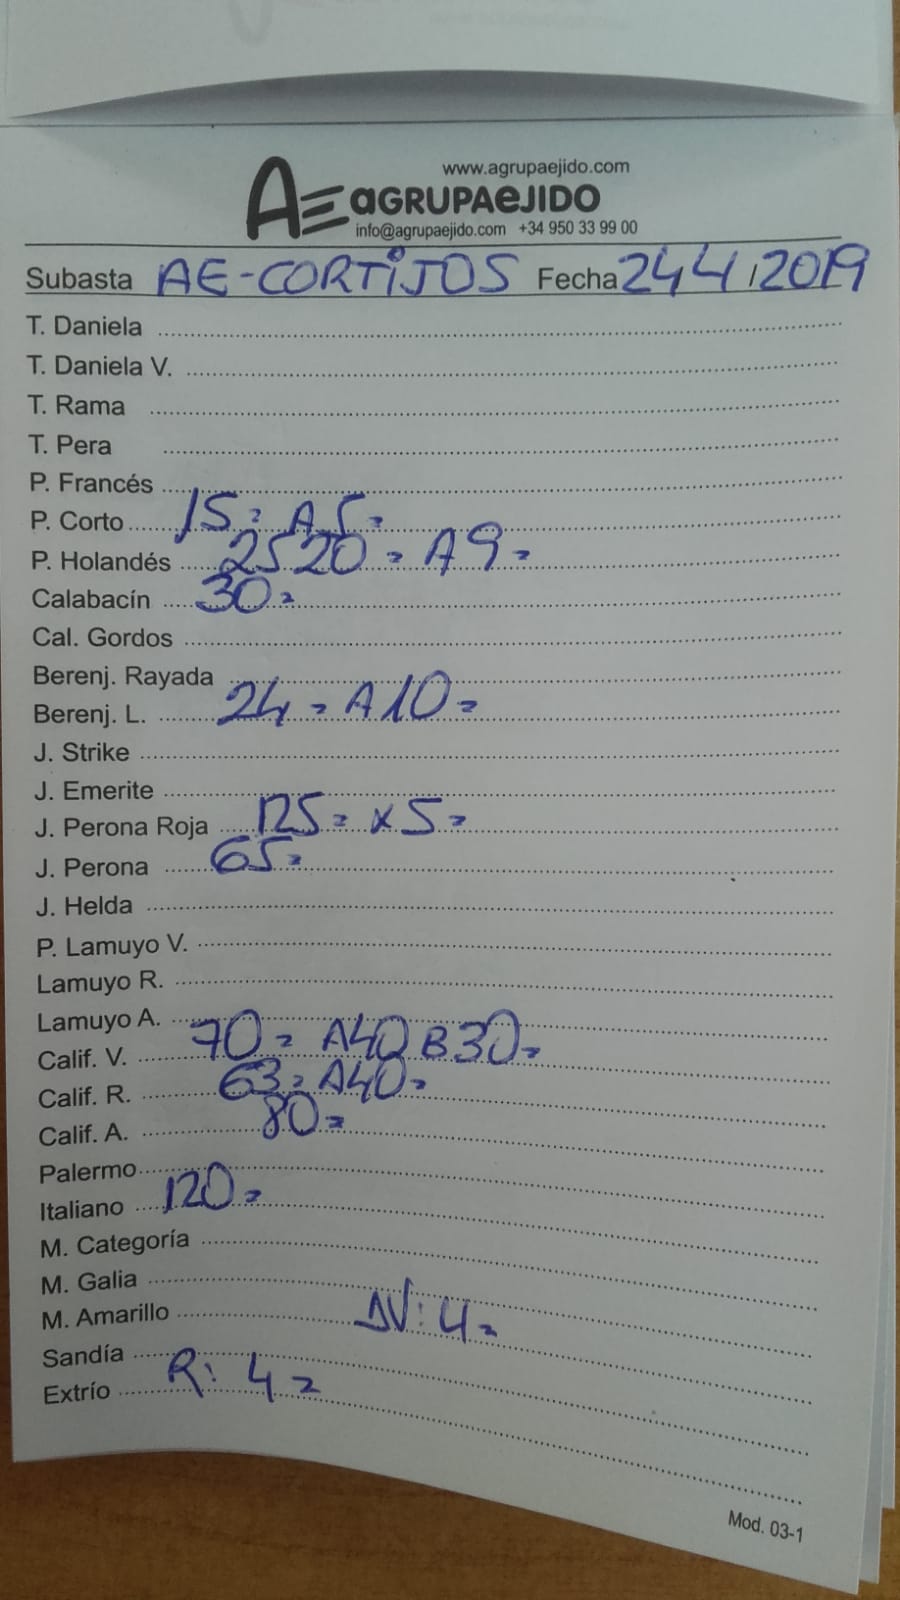 www.agrupaejido.com
AE aGRUPAeJIDO
info@agrupaejido.com +34 950 33 99 00
Subasta AE-CORTIJOS Fecha 24 4 / 2019
T. Daniela
T. Daniela V.
T. Rama
T. Pera
P. Francés
P. Corto 15= A5=
P. Holandés 25 20= A9=
Calabacín 30=
Cal. Gordos
Berenj. Rayada
Berenj. L. 24= A10=
J. Strike
J. Emerite
J. Perona Roja 125= x5=
J. Perona 65=
J. Helda
P. Lamuyo V.
Lamuyo R.
Lamuyo A.
Calif. V. 70= A40 B30=
Calif. R. 63= A40=
Calif. A. 80=
Palermo
Italiano 120=
M. Categoría
M. Galia
M. Amarillo
Sandía
Extrío R: 4= DV: 4=
Mod. 03-1